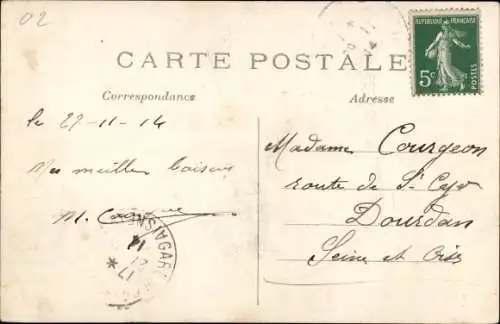 02
RÉPUBLIQUE FRANÇAISE
5c
POSTES
CARTE POSTALE
Correspondance
Adresse
le 27-11-14
Mes meilleurs baisers
M.
Madame Courgeon
route de St Cyr
Dourdan
Seine et Oise
AISNE GARE